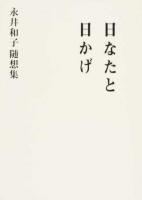 日なたと
日かげ
永井和子随想集